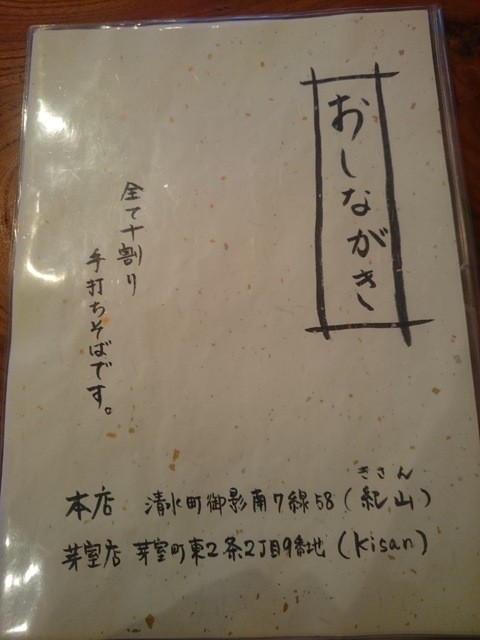 おしながき
全て十割り
手打ちそばです。
きさん
本店 清水町御影南7線58(紀山)
芽室店 芽室町東2条2丁目9番地(Kisan)